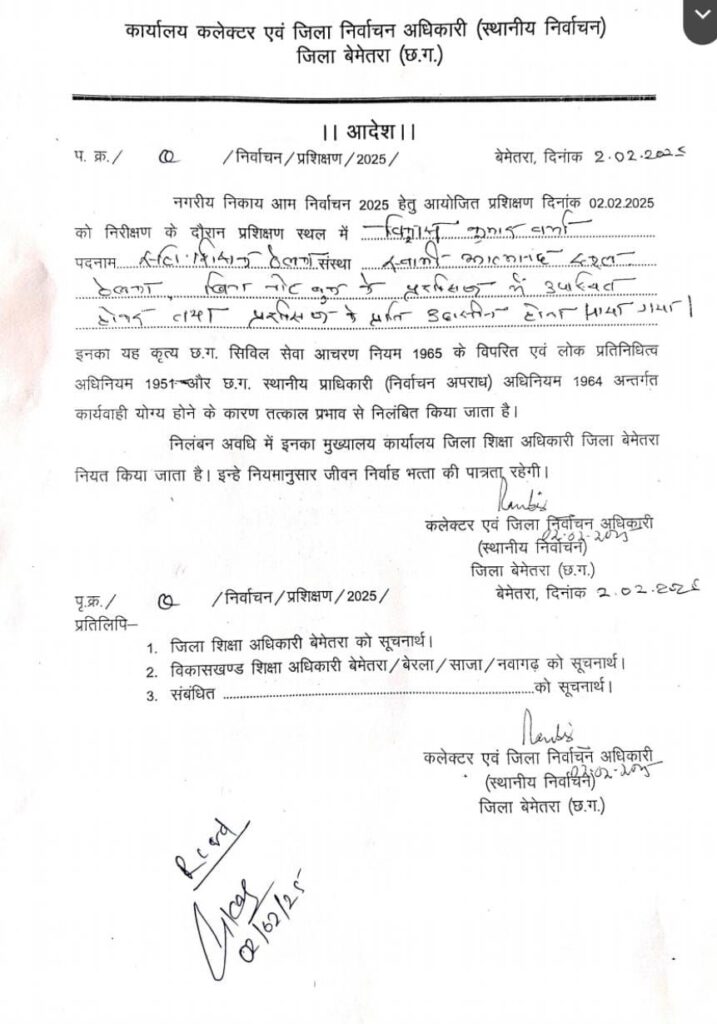 कार्यालय कलेक्टर एवं जिला निर्वाचन अधिकारी (स्थानीय निर्वाचन)
जिला बेमेतरा (छ.ग.)
।। आदेश।।
प. क्र./ /निर्वाचन/प्रशिक्षण/2025/ बेमेतरा, दिनांक 2.02.2025
नगरीय निकाय आम निर्वाचन 2025 हेतु आयोजित प्रशिक्षण दिनांक 02.02.2025
को निरीक्षण के दौरान प्रशिक्षण स्थल में कुमार वर्मा
पदनाम संस्था स्वामी आत्मानंद स्कूल
बिना नोट बुक के प्रशिक्षण में उपस्थित
होकर तथा प्रशिक्षण के प्रति उदासीन होना पाया गया।
इनका यह कृत्य छ.ग. सिविल सेवा आचरण नियम 1965 के विपरित एवं लोक प्रतिनिधित्व
अधिनियम 1951 और छ.ग. स्थानीय प्राधिकारी (निर्वाचन अपराध) अधिनियम 1964 अन्तर्गत
कार्यवाही योग्य होने के कारण तत्काल प्रभाव से निलंबित किया जाता है।
निलंबन अवधि में इनका मुख्यालय कार्यालय जिला शिक्षा अधिकारी जिला बेमेतरा
नियत किया जाता है। इन्हे नियमानुसार जीवन निर्वाह भत्ता की पात्रता रहेगी।
कलेक्टर एवं जिला निर्वाचन अधिकारी
02.02.2025
(स्थानीय निर्वाचन)
जिला बेमेतरा (छ.ग.)
पृ.क्र./ /निर्वाचन/प्रशिक्षण/2025/ बेमेतरा, दिनांक 2.02.2025
प्रतिलिपि–
1. जिला शिक्षा अधिकारी बेमेतरा को सूचनार्थ।
2. विकासखण्ड शिक्षा अधिकारी बेमेतरा/बेरला/साजा/नवागढ़ को सूचनार्थ।
3. संबंधित ........................................को सूचनार्थ।
कलेक्टर एवं जिला निर्वाचन अधिकारी
02-02-2025
(स्थानीय निर्वाचन)
जिला बेमेतरा (छ.ग.)
Rcvd
02/02/25